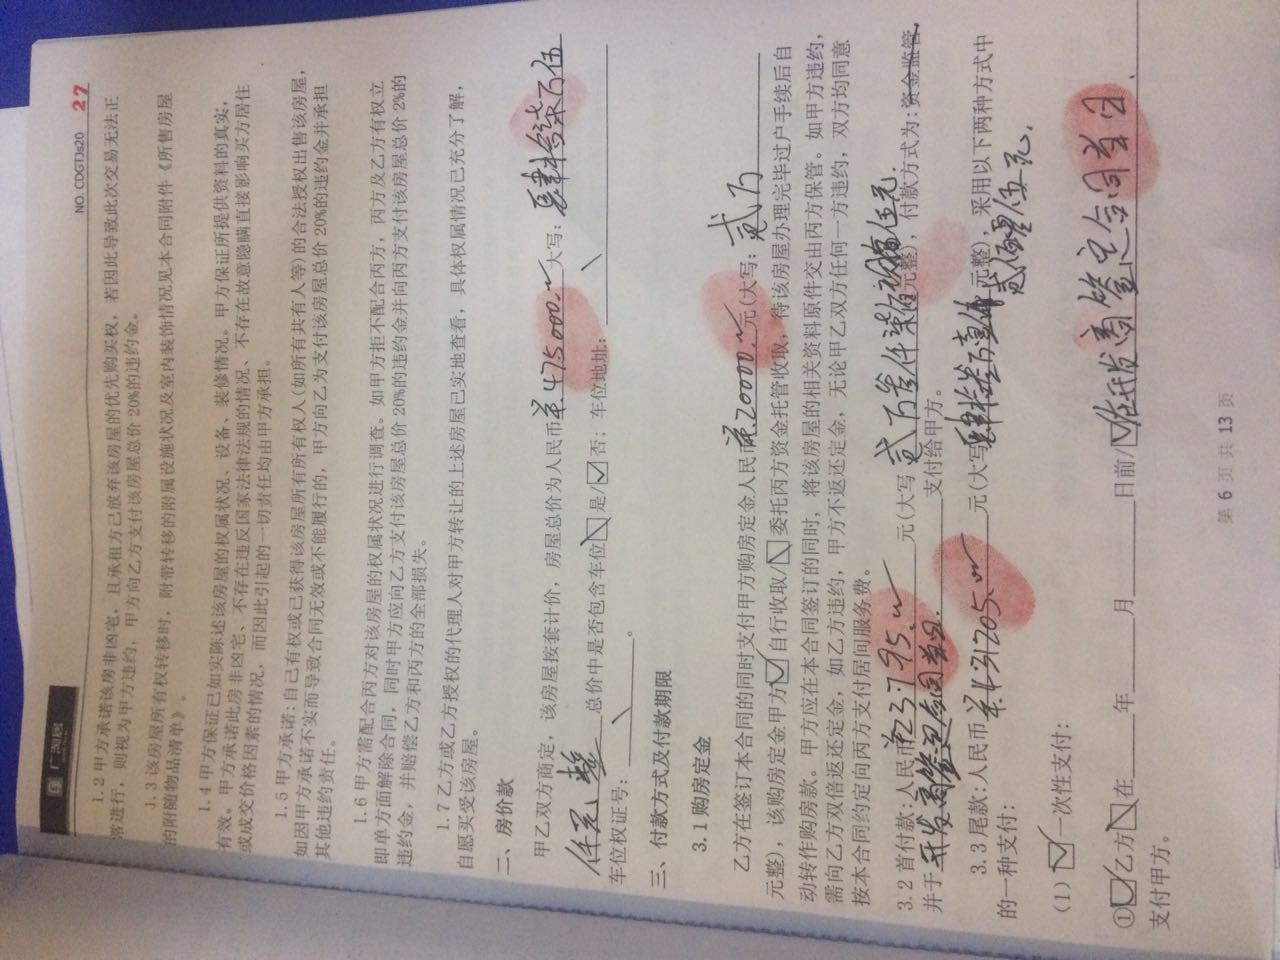 广淘居
NO. CDGTJs20 27
1.2 甲方承诺该房非凶宅，且承租方已放弃该房屋的优先购买权，若因此导致此次交易无法正
常进行，则视为甲方违约，甲方向乙方支付该房屋总价 20%的违约金。
1.3 该房屋所有权转移时，附带转移的附属设施状况及室内装饰情况见本合同附件《所售房屋
的附随物品清单》。
1.4 甲方保证已如实陈述该房屋的权属状况、设备、装修情况。甲方保证所提供资料的真实、
有效。甲方承诺此房非凶宅、不存在违反国家法律法规的情况、不存在故意隐瞒直接影响买方居住
或成交价格因素的情况，而因此引起的一切责任均由甲方承担。
1.5 甲方承诺：自己有权或已获得该房屋所有所有权人(如所有共有人等)的合法授权出售该房屋，
如因甲方承诺不实而导致合同无效或不能履行的，甲方向乙为支付该房屋总价 20%的违约金并承担
其他违约责任。
1.6 甲方需配合丙方对该房屋的权属状况进行调查。如甲方拒不配合丙方，丙方及乙方有权立
即单方面解除合同，同时甲方应向乙方支付该房屋总价 20%的违约金并向丙方支付该房屋总价 2%的
违约金，并赔偿乙方和丙方的全部损失。
1.7 乙方或乙方授权的代理人对甲方转让的上述房屋已实地查看，具体权属情况已充分了解，
自愿买受该房屋。
二、房价款
甲乙双方商定，该房屋按套计价，房屋总价为人民币 475000 大写：肆拾柒万伍
仟元整 总价中是否包含车位 是/☑否；车位地址：
车位权证号： 。
三、付款方式及付款期限
3.1 购房定金
乙方在签订本合同的同时支付甲方购房定金人民币 20000 元(大写：贰万
元整)，该购房定金甲方☑自行收取/ 委托丙方资金托管收取，待该房屋办理完毕过户手续后自
动转作购房款。甲方应在本合同签订的同时，将该房屋的相关资料原件交由丙方保管。如甲方违约，
需向乙方双倍返还定金，如乙方违约，甲方不返还定金，无论甲乙双方任何一方违约，双方均同意
按本合同约定向丙方支付居间服务费。
3.2 首付款：人民币 23795 元(大写 贰万叁仟柒佰玖拾伍元 元整)，付款方式为：资金监管，
并于 开发商签定合同当日. 支付给甲方。
3.3 尾款：人民币 431205 元(大写 肆拾叁万壹仟 元整)，采用以下两种方式中
贰佰零伍元.
的一种支付：
(1) ☑一次性支付：
①☑乙方 在 年 月 日前/☑在开发商签定合同当日.
支付甲方。
第 6 页 共 13 页